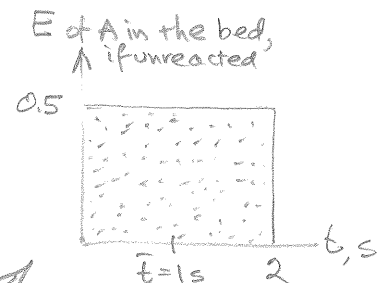 E of A in the bed,
if unreacted
0.5
t̄=1s
2
t, s